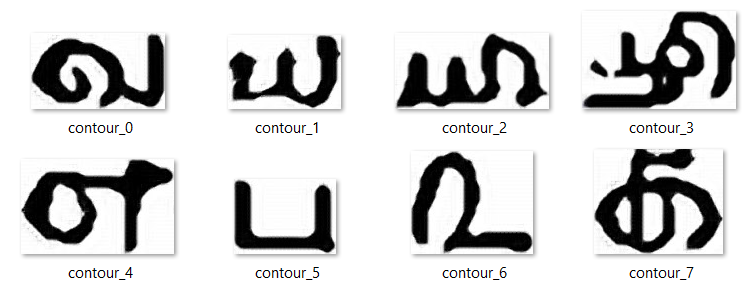 வ ய
contour_0 contour_1 contour_2 contour_3
ப
contour_4 contour_5 contour_6 contour_7